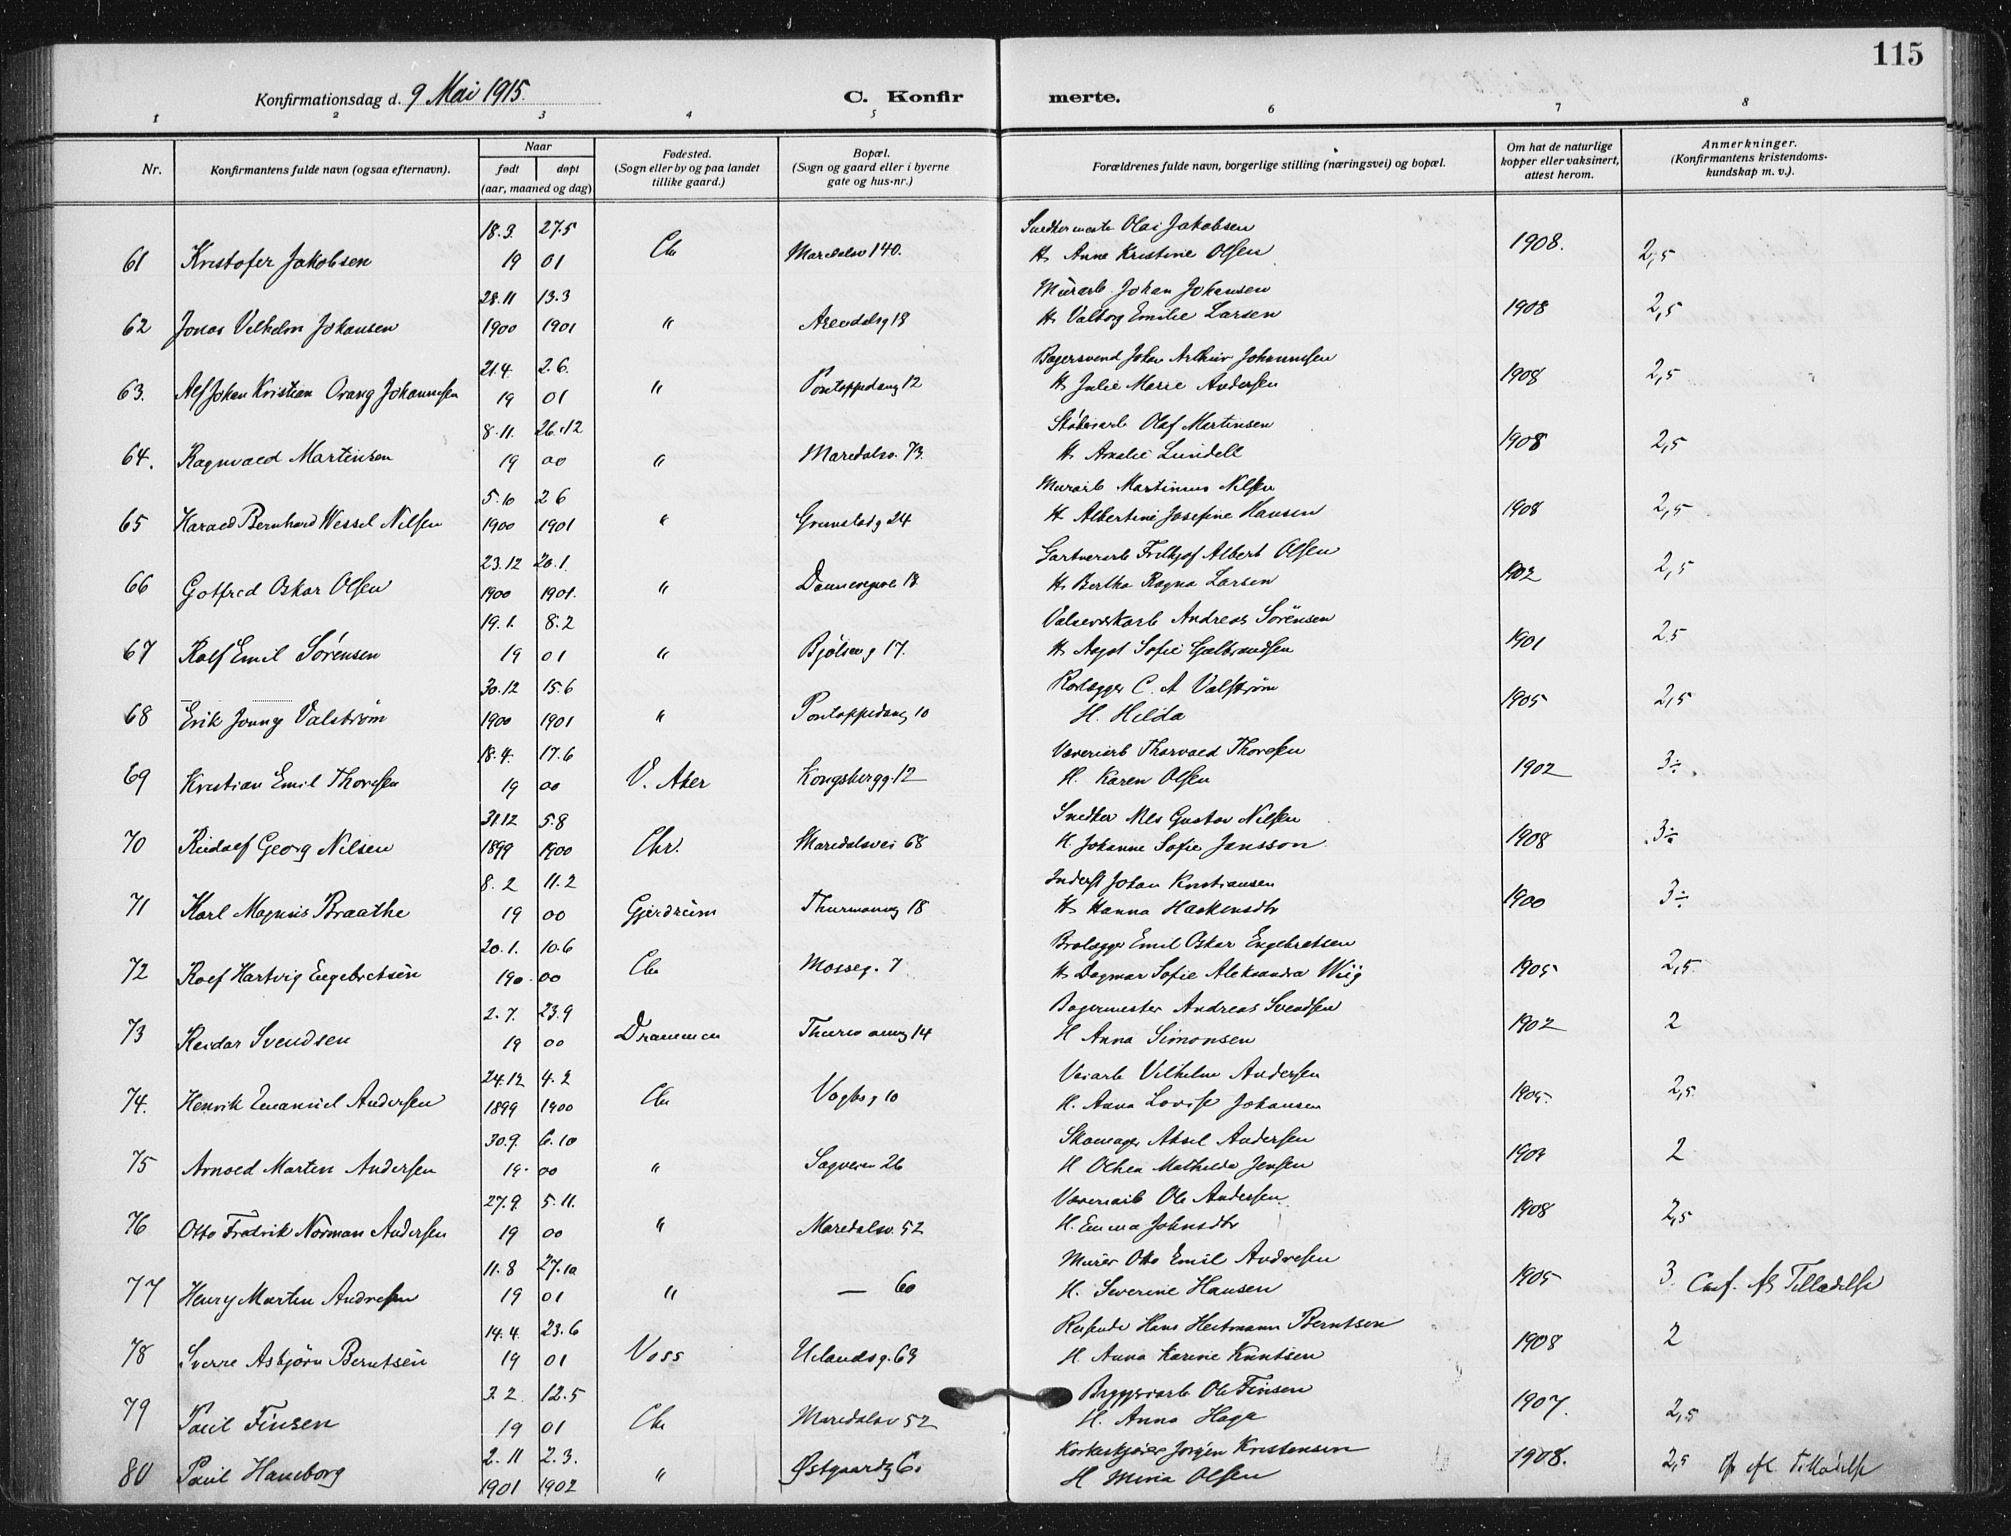 115
Konfirmationsdag d. 9 Mai 1915.
C. Konfirmerte.
1 2 3 4 5 6 7 8
Nr.
Konfirmantens fulde navn (ogsaa efternavn).
Naar
født døpt
(aar, maaned og dag)
Fødested.
(Sogn eller by og paa landet
tillike gaard.)
Bopæl.
(Sogn og gaard eller i byerne
gate og hus-nr.)
Forældrenes fulde navn, borgerlige stilling (næringsvei) og bopæl.
Om hat de naturlige
kopper eller vaksinert,
attest herom.
Anmerkninger.
(Konfirmantens kristendoms-
kundskap m. v.).
18.3. 27.5 Snedkermester Olai Jakobsen
61 Kristofer Jakobsen 19 01 Chr Maridalsv 140. H. Anne Kristine Olsen 1908. 2,5
28.11 13.3 Murarb. Johan Johansen
62 Jonas Vilhelm Johansen 1900 1901 " Arendalsg 18 H. Valborg Emilie Larsen 1908 2,5
21.4. 2.6. Bagersvend Johan Arthur Johannesen
63. Alf Johan Kristian Orang Johannesen 19 01 " Pontoppidansg 12 H. Julie Marie Andersen 1908 2,5
8.11. 26.12 Støberiarb Olaf Martinsen
64. Ragnvald Martinsen 19 00 " Maridalsv. 73. H. Amalie Lundell 1908 2,5
5.10 2.6 Murarb Martinius Nilsen
65 Harald Bernhard Wessel Nilsen 1900 1901 " Grimstadg 24 H. Albertine Josefine Hansen 1908 2,5
23.12 20.1. Gartnerarb Fridtjof Albert Olsen
66 Gotfred Oskar Olsen 1900 1901. " Dannevigsv 18 H. Bertha Ragna Larsen 1902 2,5
19.1. 8.2 Valseverkarb Andreas Sørensen
67 Rolf Emil Sørensen 19 01 " Bjølseng 17. H. Aagot Sofie Gulbrandsen 1901 2,5
30.12 15.6 Rørlægger C. A Valstrøm
68 Erik Jonny Valstrøm 1900 1901 " Pontoppidansg 10 H. Hilda 1905 2,5
18.4. 17.6 Væveriarb Thorvald Thoresen
69 Kristian Emil Thoresen 19 00 V. Aker Kongsbergg. 12 H. Karen Olsen 1902 3÷
31.12 5.8 Snedker Nils Gustav Nilsen
70 Rudolf Georg Nilsen 1899 1900 Chr. Maridalsvei 68 H. Johanne Sofie Jansson 1908 3÷
8.2 11.2 Inderst Johan Kristiansen
71 Karl Magnus Braathe 19 00 Gjerdrum Thurmannsg 18 H. Hanna Haakensdtr 1900 3÷
20.1. 10.6 Brolægger Emil Oskar Engebretsen
72 Rolf Hartvig Engebretsen 190 00 Chr Mosseg. 7 H. Dagmar Sofie Aleksandra Wiig 1905 2,5.
2.7. 23.9 Bagermester Andreas Svendsen
73 Reidar Svendsen 19 00 Drammen Thurmannsg 14 H Anna Simonsen 1902 2
24.12 4.2 Veiarb Vilhelm Andersen
74. Henrik Emanuel Andersen 1899 1900 Chr Vogtsg 10 H. Anna Lovise Johansen 1905. 2,5.
30.9. 6.10 Skomager Aksel Andersen
75 Arnold Marten Andersen 19. 00 " Sagveien 26 H Olhea Mathilde Jensen 2
27.9. 5.11. Væveriarb Ole Andersen
76 Otto Fredrik Norman Andersen 19 00 " Maridalsv. 52 H. Emma Johnsdtr 1908 2,5
11.8 27.10 Murer Otto Emil Andresen
77 Henry Martin Andresen 19 01 " — 60 H. Severine Hansen 1905 3. Conf. eft Tilladelse
14.4. 23.6 Reisende Hans Heitmann Berntsen
78 Sverre Asbjørn Berntsen 19 01 Voss Uelandsg. 69 H. Anna Karine Knutsen 1908 2
3.2. 12.5 Bryggeriarb Ole Finsen
79 Paul Finsen 19 01 Chr Maridalsv 52 H. Anna Haga 1907. 2,5
2.11 2.3. Korkeskjærer Jørgen Kristensen
80 Paul Haneborg 1901 1902 " Østgaardsg 6. H Mina Olsen 1908. 2,5 eft Tilladelse